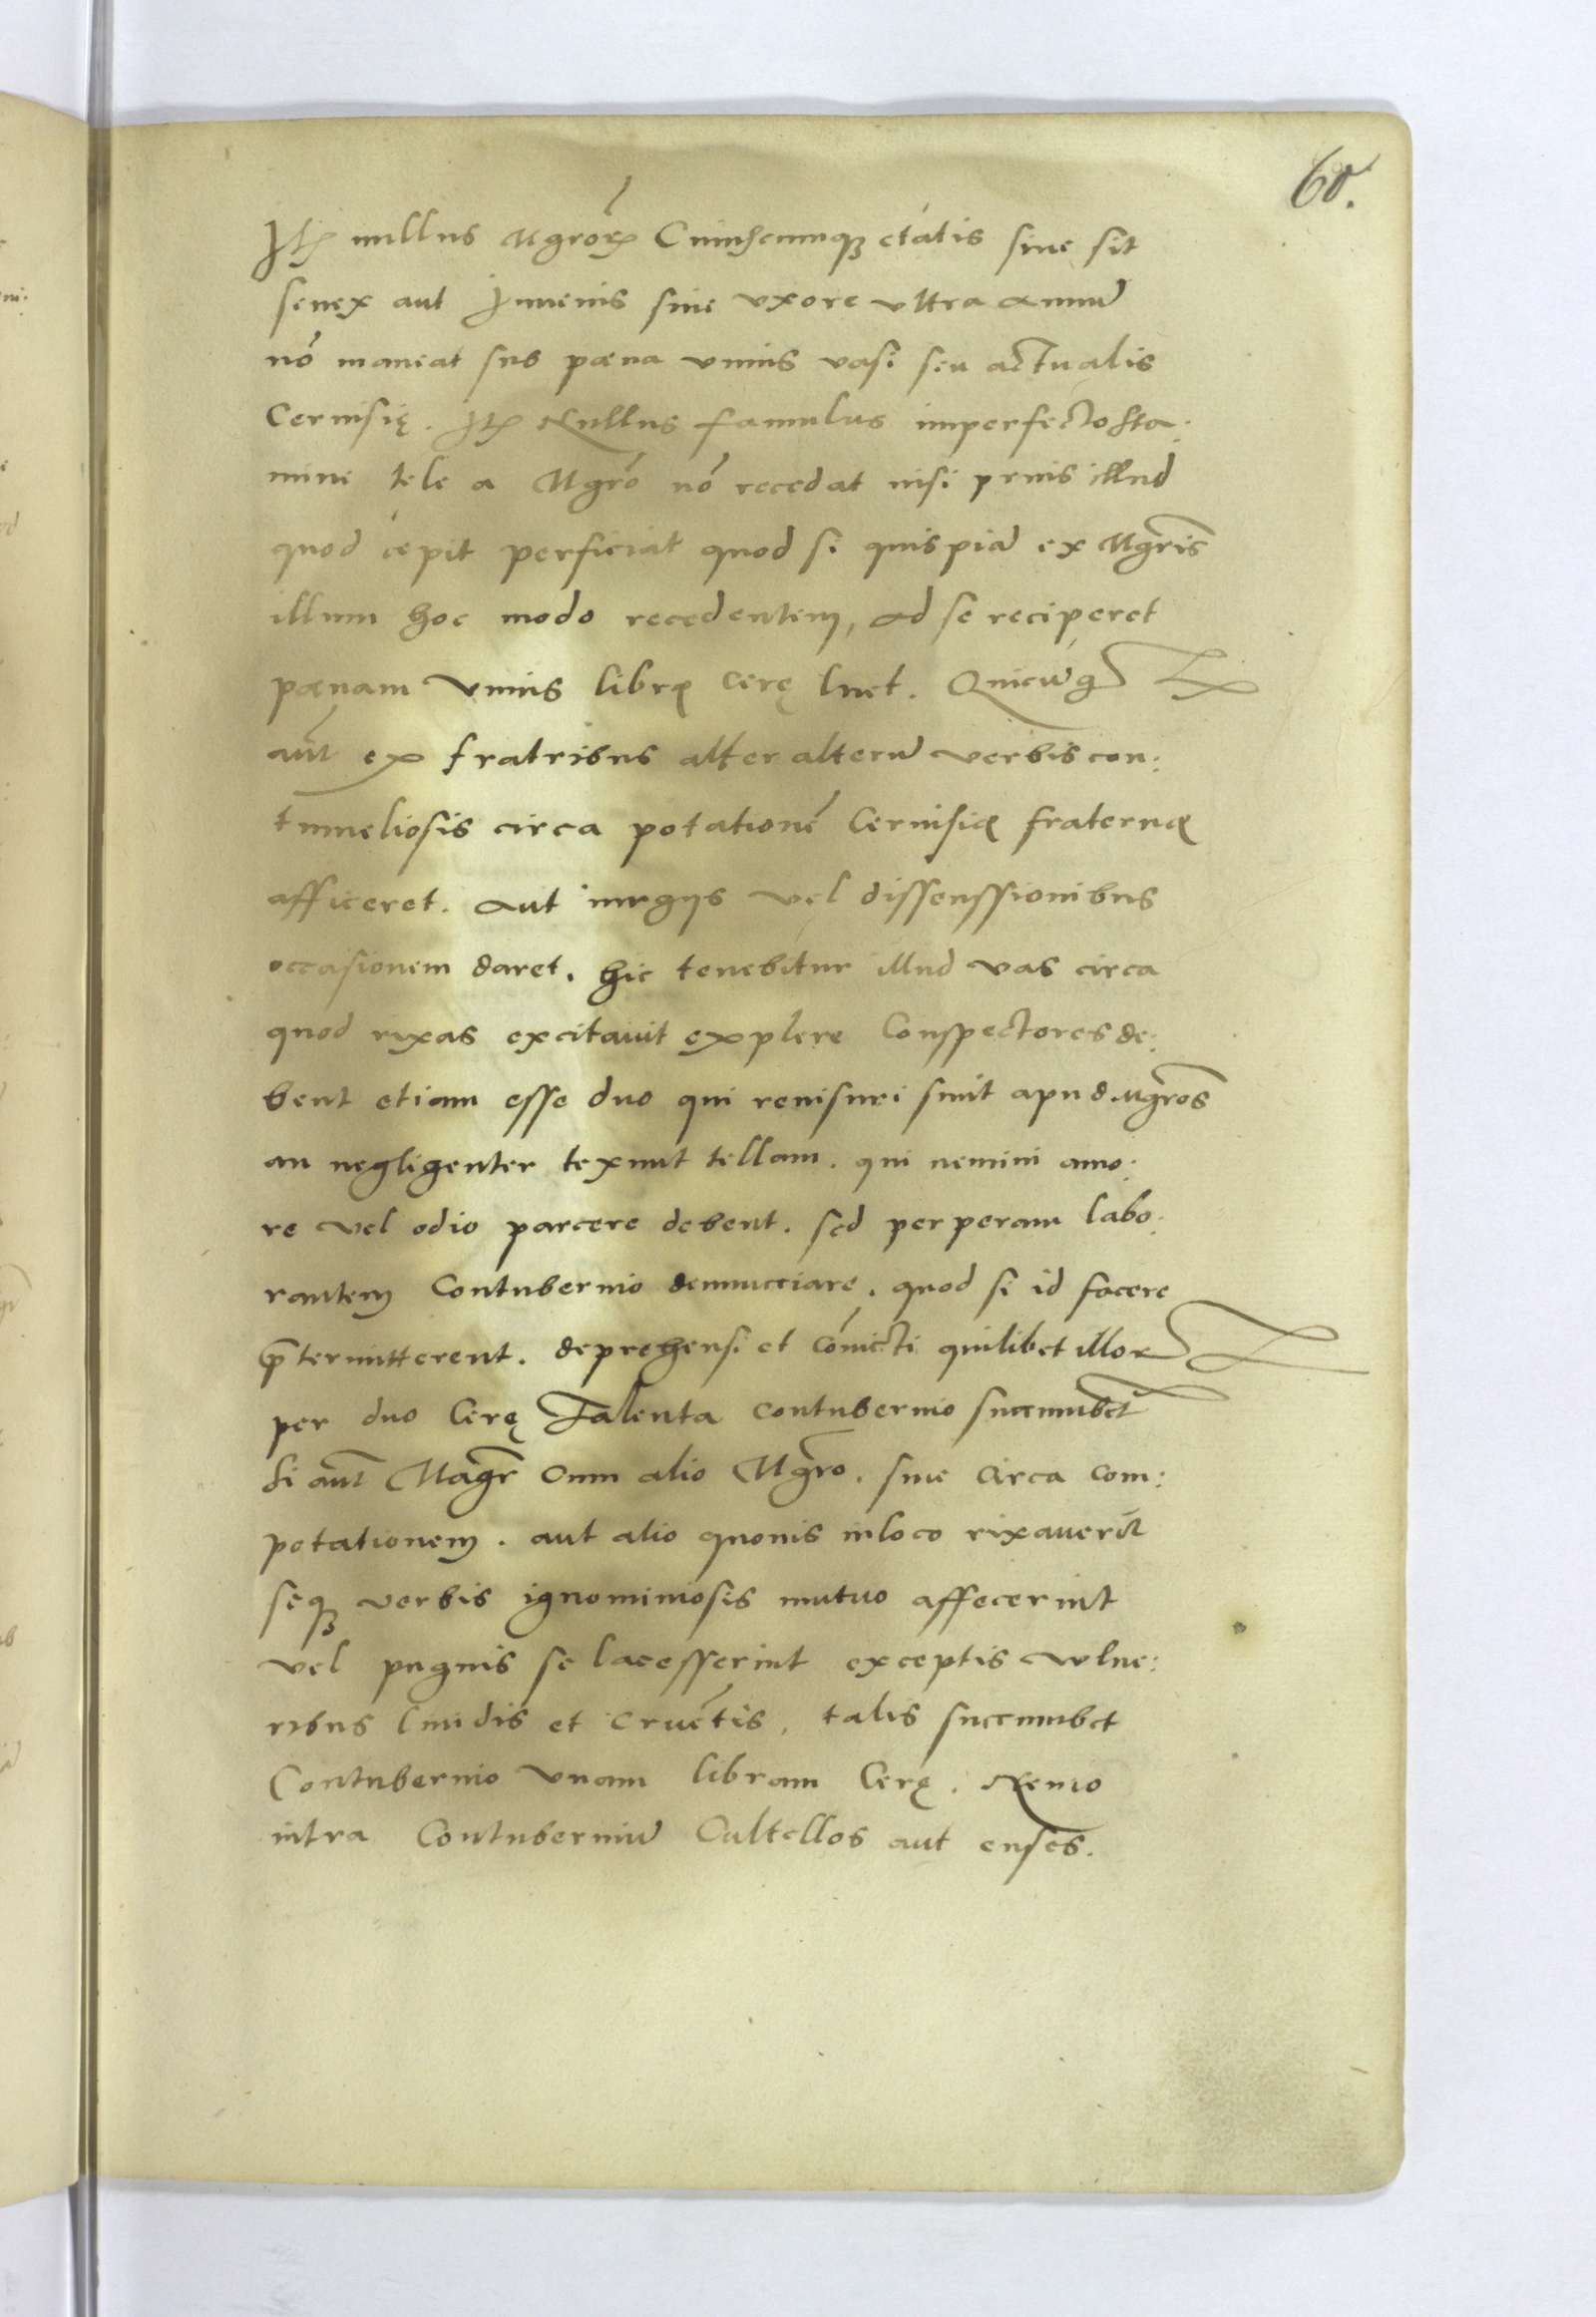 60.
Itꝫ nullus Mgrorꝫ Cuiuscumqꝫ etatis siue sit
senex aut Iuuenis sine vxore vltra annuꝫ
nō maneat sub pæna vnius vasi seu actualis
Ceruisię. Itꝫ Nullus famulus imperfecto sta:
mine tele a Mgrō nō recedat nisi prius illud
quod cepit perficiat quod si quispiaꝫ ex Mgris
illum hoc modo recedentem, ad se reciperet
pænam vnius librę cerę luet. Quicūqꝫ
aūt ex fratribus alter alteruꝫ verbis con:
tumeliosis circa potationē Ceruisię fraternę
afficeret. aut iurgijs vel dissenssionibus
occasionem daret. hic tenebitur illud vas circa
quod rixas excitauit explere Conspectores de:
bent etiam esse duo qui reuisuri sunt apud Mgros
an negligenter texunt tellam. qui nemini amo:
re vel odio parcere debent. sed perperam labo:
rantem Contubernio denuncciare. quod si id facere
p̄termitterent. deprehensi et cōuicti quilibet illorꝫ
per duo Cerę Talenta contubernio succumbet
Si aūt Magr̄ Cum alio Mgro. siue Circa com:
potationem. aut alio quouis in loco rixauerīt
seqꝫ verbis ignominiosis mutuo affecerint
vel pugnis se lacesserint exceptis vulne:
ribus liuidis et cruētis, talis succumbet
Contubernio vnam libram Cerę. Nemo
intra Contuberniuꝫ Cultellos aut enses.